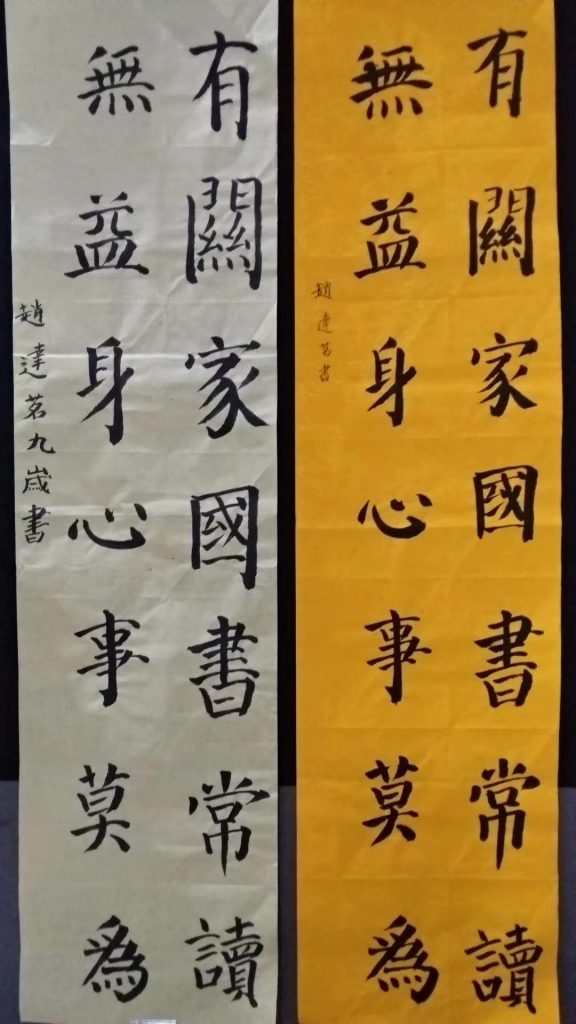 有關家國書常讀
無益身心事莫為
趙達茗書
有關家國書常讀
無益身心事莫為
趙達茗九歲書